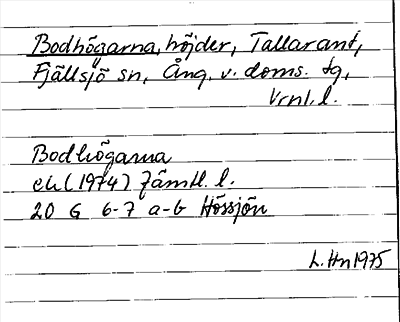 Bodhögarna, höjder, Tallarant,
Fjällsjö sn, Ång. v. doms. tg,
Vrnl. l.
Bodhögarna
ek (1974) Jämtl. l.
20 G 6-7 a-b Hössjön
L. Hn 1975